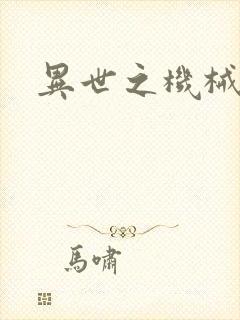 異世之機械
馬嘯